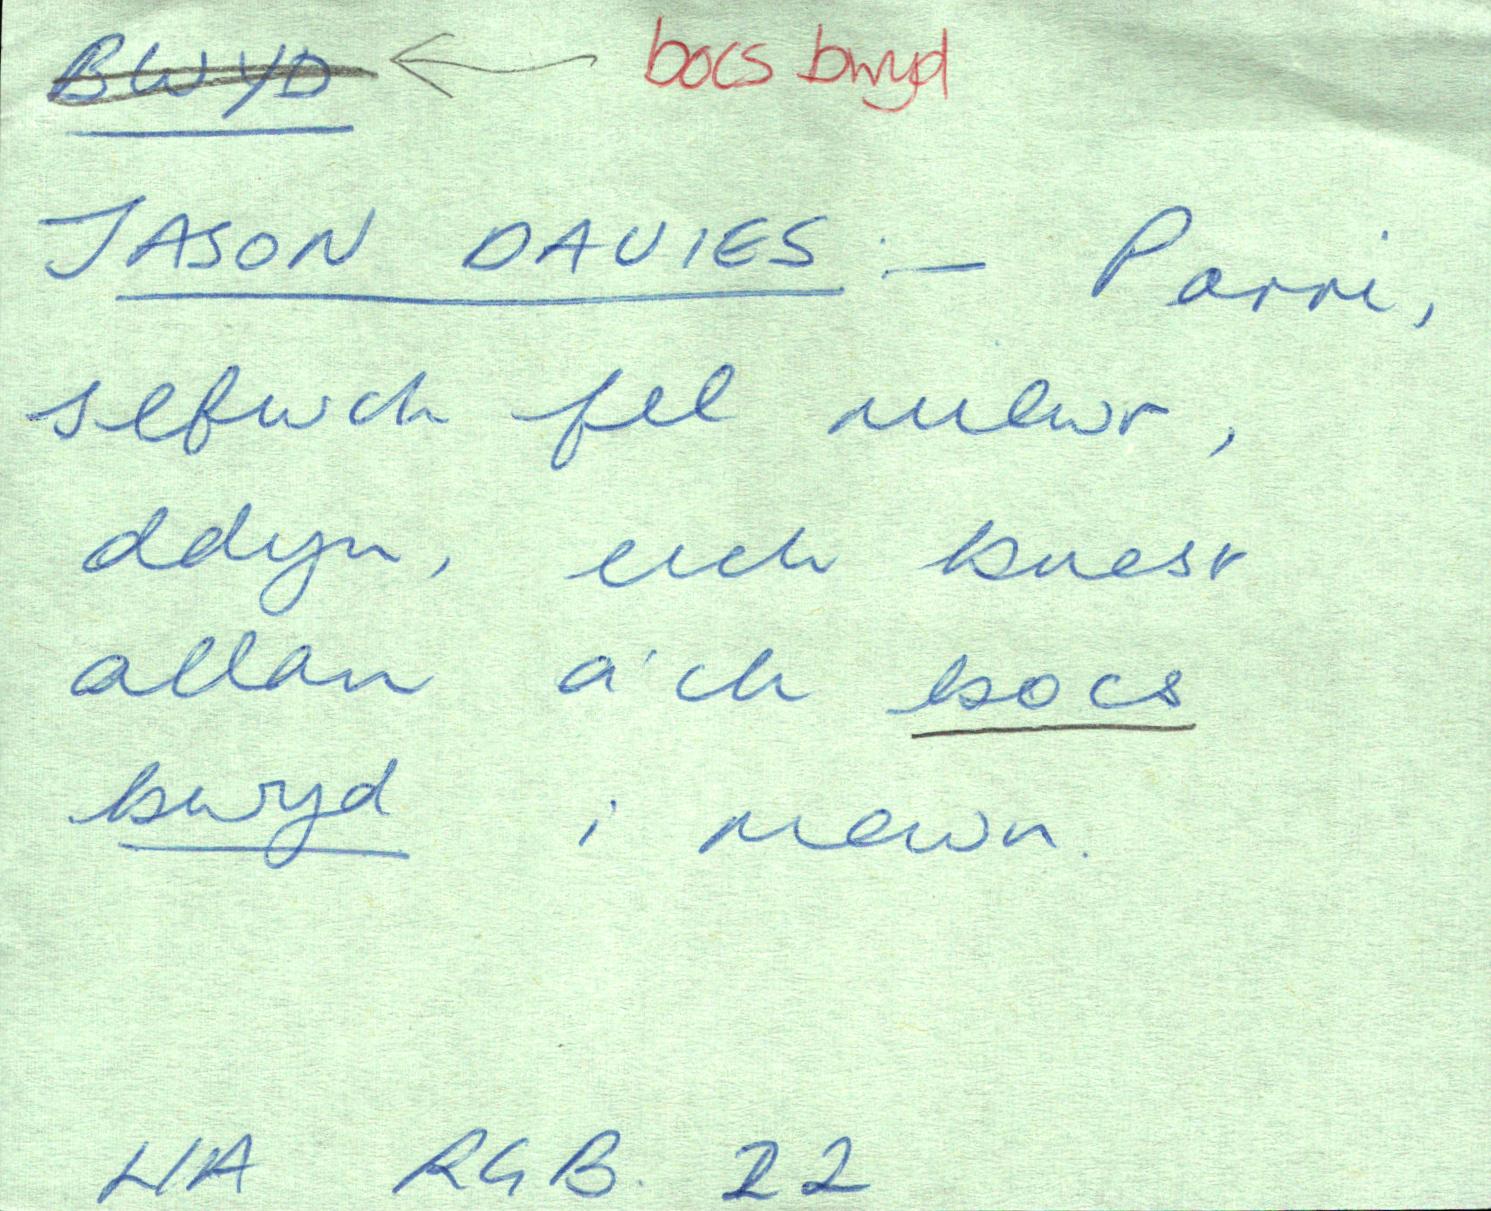 BWYD bocs bwyd
JASON DAVIES :— Parri,
sefwch fel milwr,
ddyn, eich brest
allan a'ch bocs
bwyd i mewn.
RGB. 22